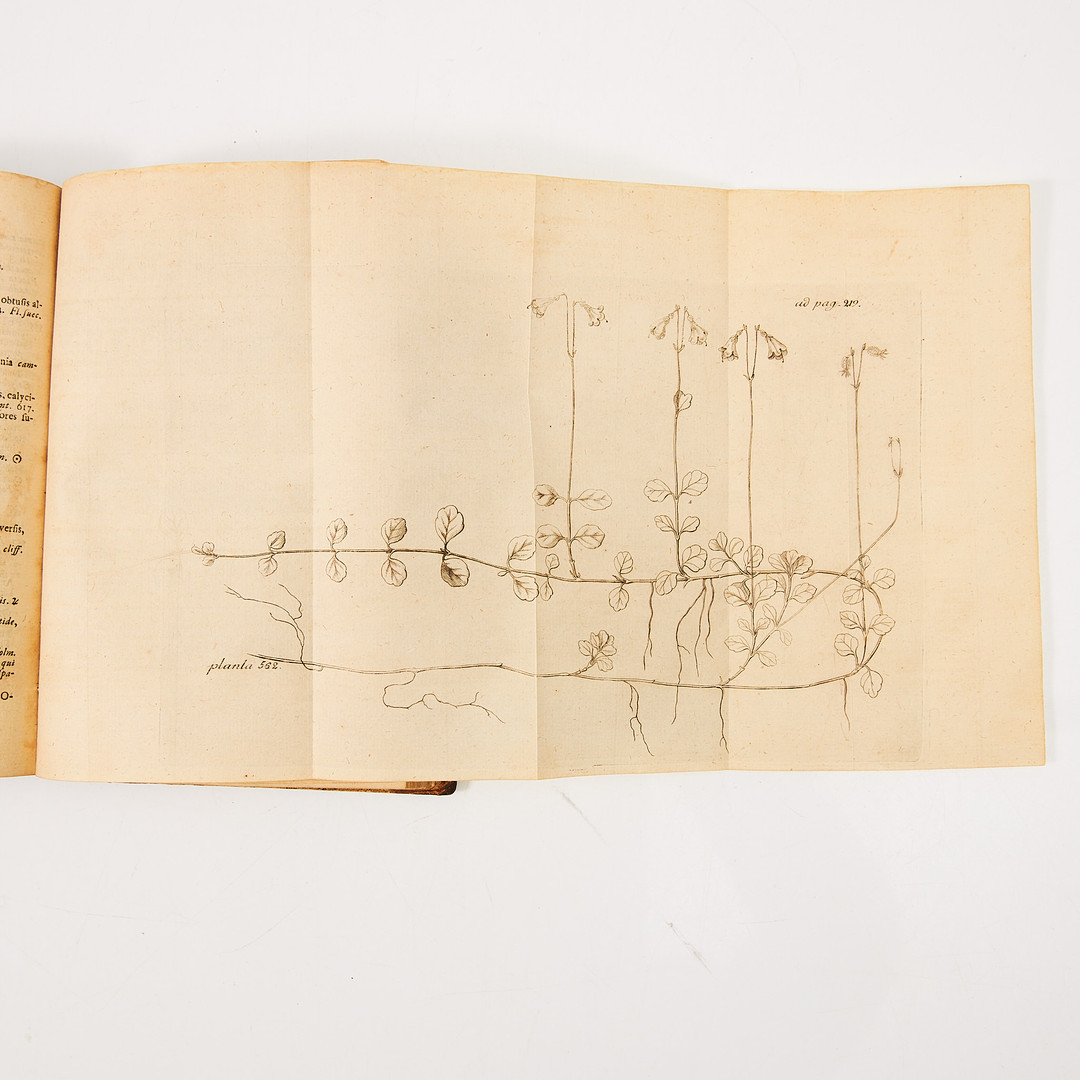 obtusis al-
Fl. suec.
nia cam-
calyci-
nt. 617.
ores su-
n. ☉
versis,
cliff.
is. ♃
tide,
olm.
qui
spa-
O-
ad pag. 219.
planta 562.